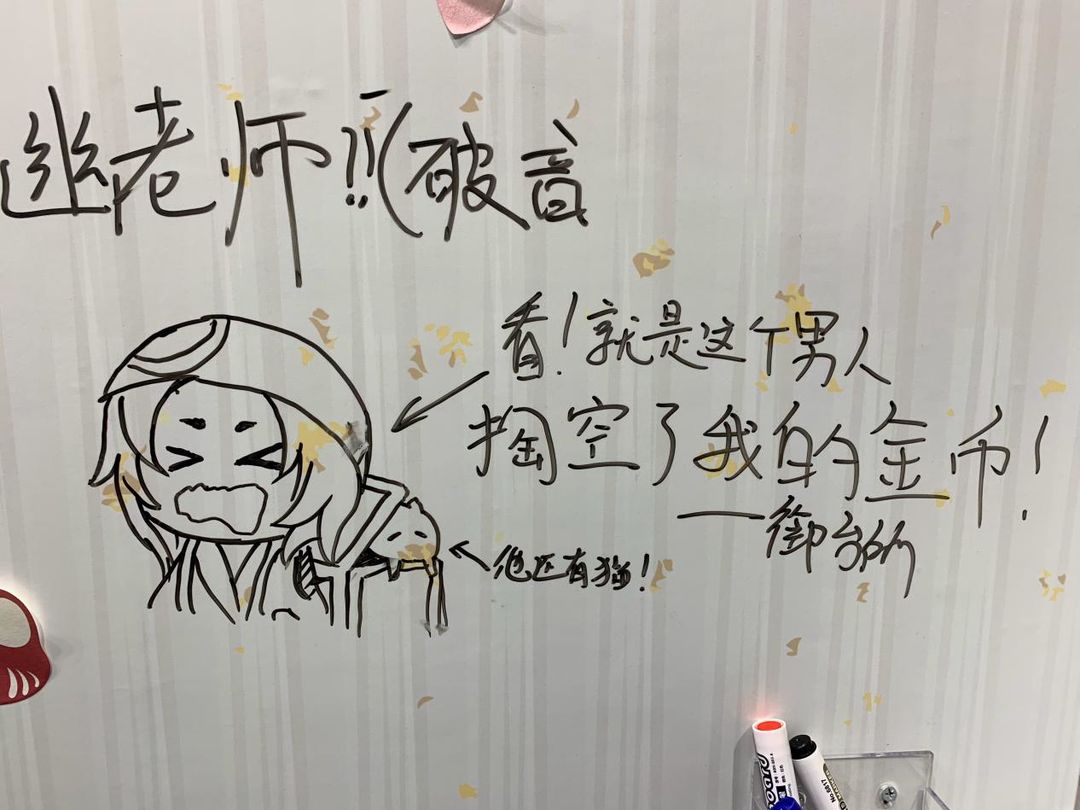 老师!!(破音
看!就是这个男人
掏空了我的金币!
—御台所
他还有猫!